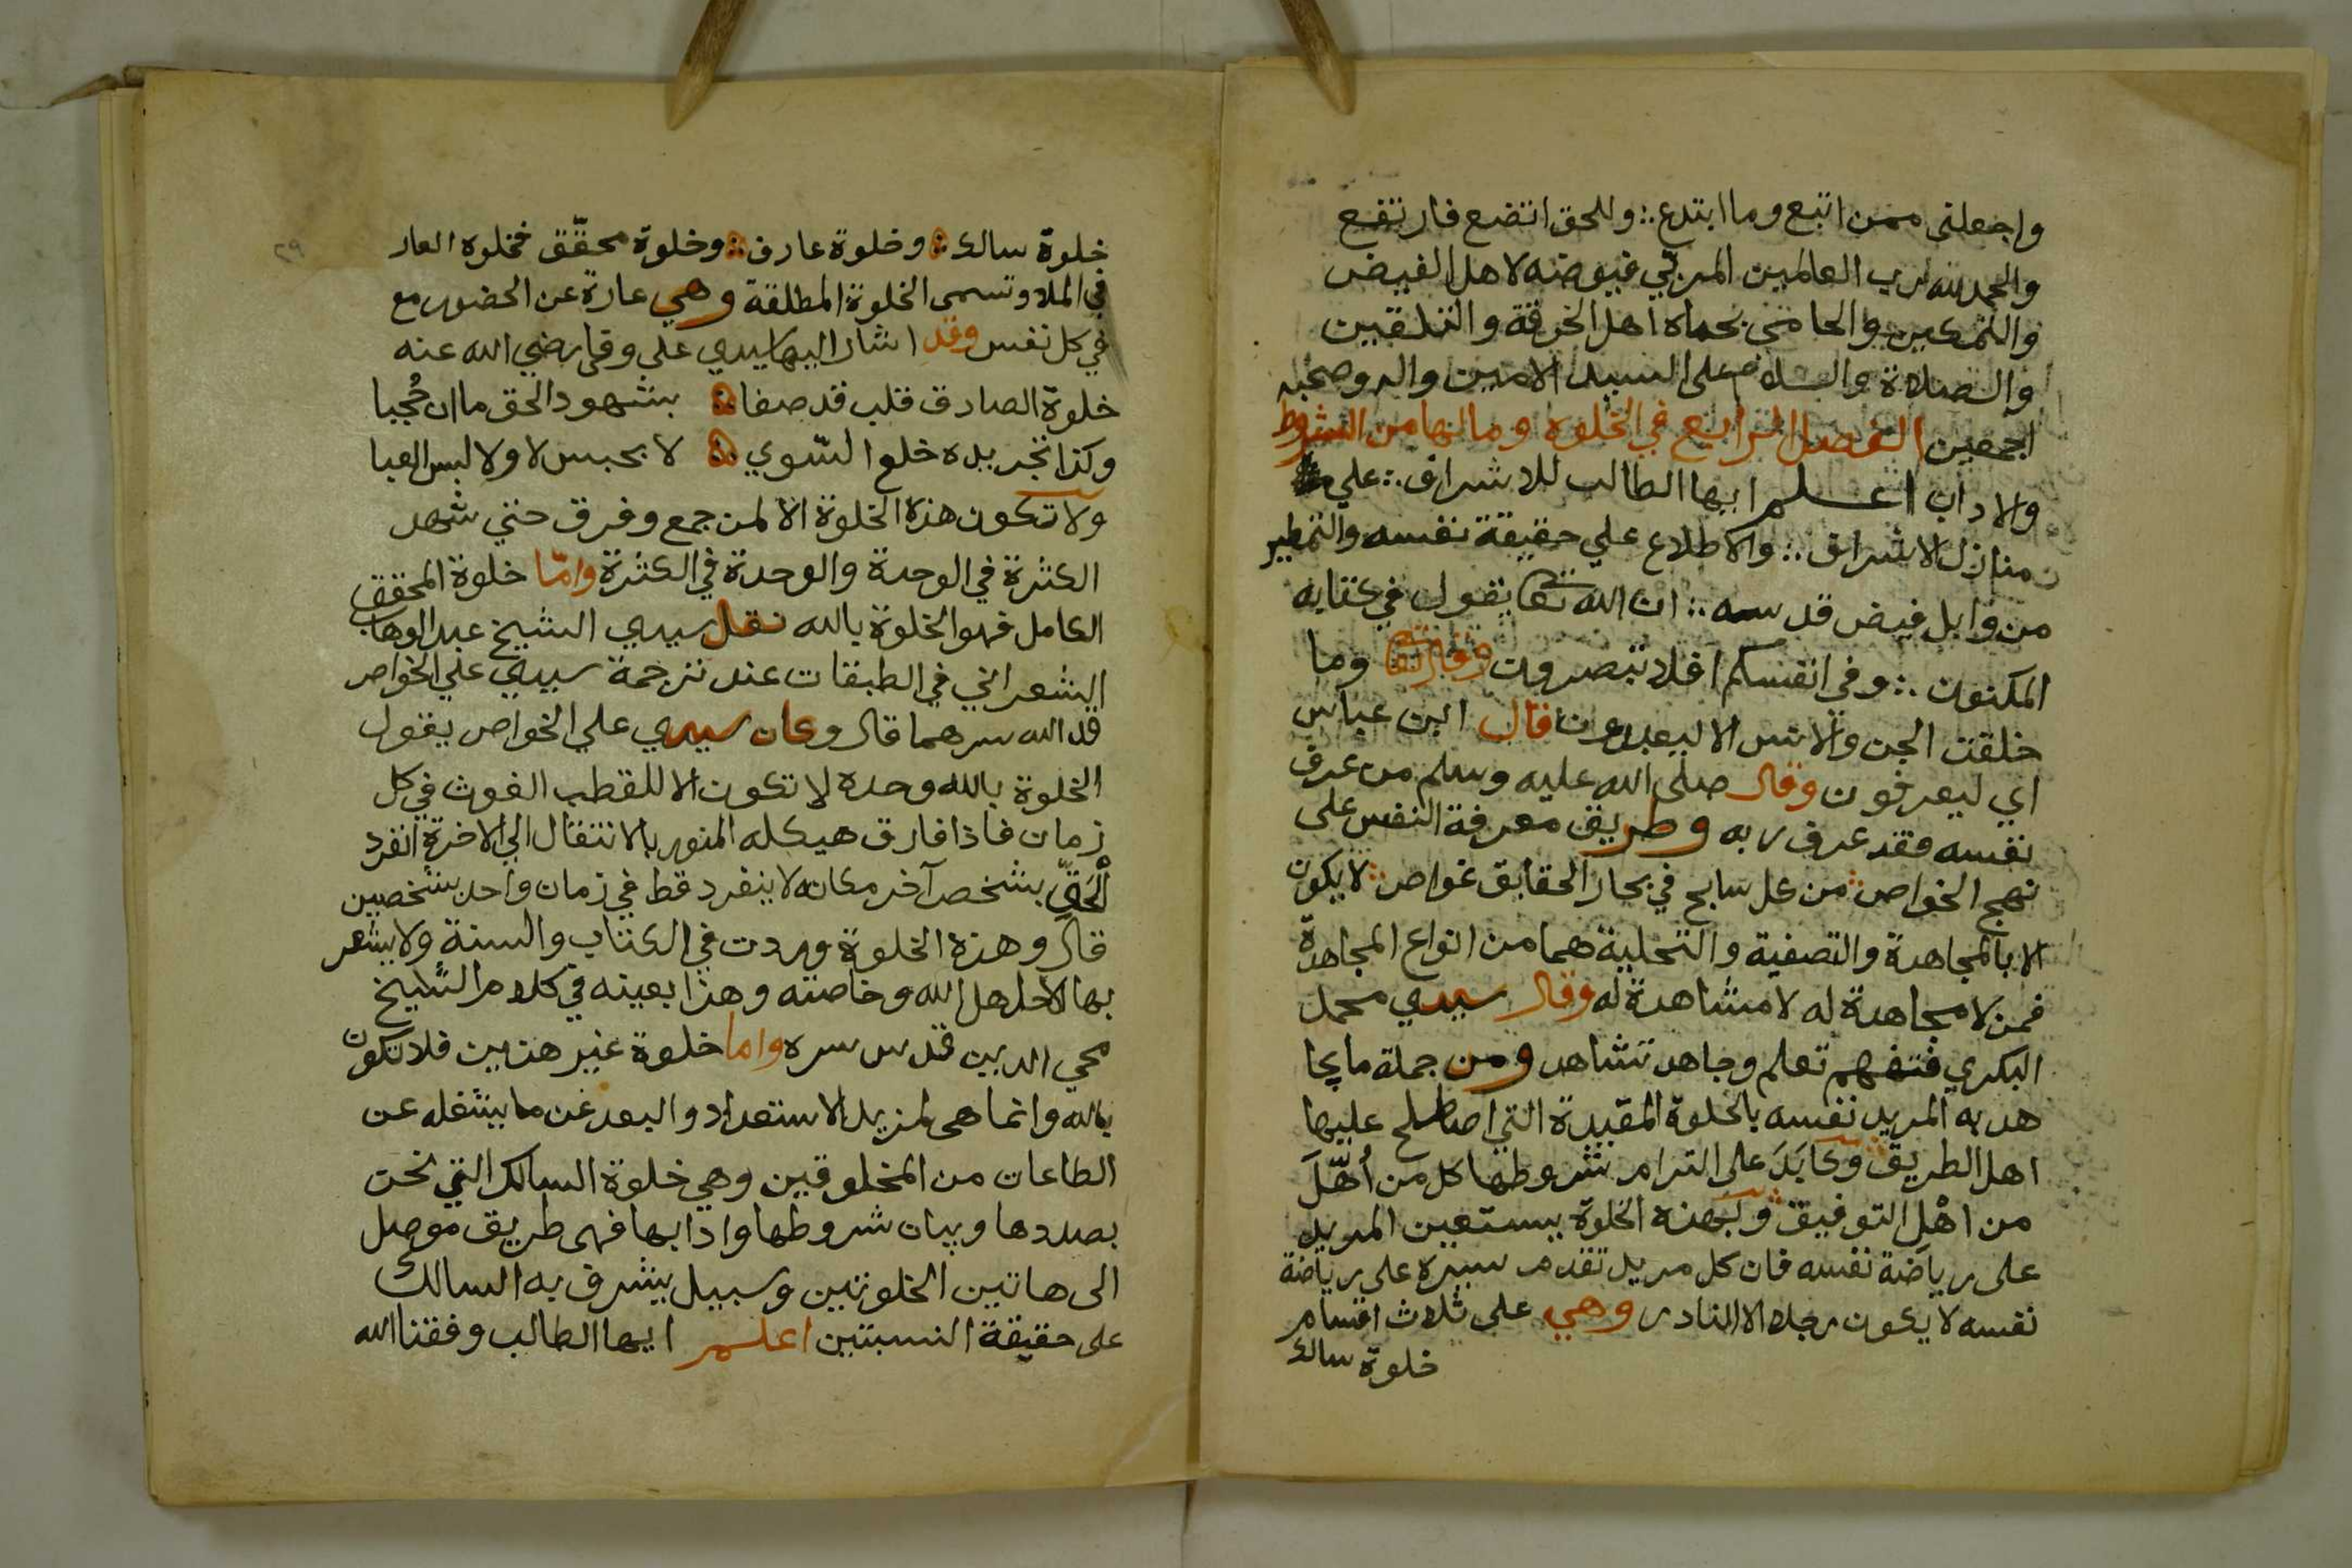 واجعلنى ممن اتبع وما ابتدع ∴ وللحق اتضع فارتفع
والحمد لله رب العالمين المربي فيوضه لاهل الفيض
والتمكين والحامى بحماه اهل الخرقة والتلقين
والصلاة والسلام على السيد الامين واله وصحبه
اجمعين الفصل الرابع في الخلوة وما لها من الشروط
والاداب اعلم ايها الطالب للاشراق ∴ علي
منازل الاشراق ∴ والاطلاع علي حقيقة نفسه والتمطير
من وابل فيض قدسه ∴ ان الله تعا يقول في كتابه
المكنون ∴ وفي انفسكم افلا تبصرون وقال تعا وما
خلقت الجن والانس الا ليعبدون قال ابن عباس
اي ليعرفون وقال صلى الله عليه وسلم من عرف
نفسه فقد عرف ربه وطريق معرفة النفس على
نهج الخواص من كل سابح في بحار الحقايق غواص لا يكون
الا بالمجاهدة والتصفية والتحلية هما من انواع المجاهدة
فمن لا مجاهدة له لا مشاهدة له وقال سيدي محمد
البكري فتفهم تعلم وجاهد تشاهد ومن جملة ما يجا
هد به المريد نفسه بالخلوة المقيدة التي اصطلح عليها
اهل الطريق وكابَدَ على التزام شروطها كل من أُهّلَ
من اهل التوفيق وبهذه الخلوة يستعين المريد
على رياضة نفسه فان كل مريد تقدم سيره على رياضة
نفسه لا يكون رجلا الا النادر وهي على ثلاث اقسام
خلوة سالك
٢٩
خلوة سالك وخلوة عارف وخلوة محقّق فخلوة العار
في الملا وتسمى الخلوة المطلقة وهي عبارة عن الحضور مع
في كل نفس وقد اشار اليها سيدي على وفى رضي الله عنه
خلوة الصادق قلب قد صفا بشهود الحق ما ان حُجبا
وكذا تجريده خلع السّوي لا بحبس لا ولا لبس العبا
ولا تكون هذه الخلوة الا لمن جمع وفرق حتي شهد
الكثرة في الوحدة والوحدة في الكثرة وامّا خلوة المحقق
الكامل فهو الخلوة بالله نقل سيدي الشيخ عبد الوهاب
الشعراني في الطبقات عند ترجمة سيدي علي الخواص
قد الله سرهما قال وكان سيدي علي الخواص يقول
الخلوة بالله وحده لا تكون الا للقطب الغوث في كل
زمان فاذا فارق هيكله المنور بالانتقال الي الاخرة انفرد
الْحَقّ بشخص آخر مكانه لا ينفرد قط في زمان واحد بشخصين
قال وهذه الخلوة وردت في الكتاب والسنة ولا يشعر
بها الا اهل الله وخاصته وهذا بعينه في كلام الشيخ
محي الدين قدس سره واما خلوة غير هذين فلا تكون
بالله وانما هى لمزيد الاستعداد والبعد عن ما يشغله عن
الطاعات من المخلوقين وهي خلوة السالك التي نحن
بصددها وبيان شروطها وادابها فهى طريق موصل
الى هاتين الخلوتين وسبيل يشرف به السالك
على حقيقة النسبتين اعلم ايها الطالب وفقنا الله